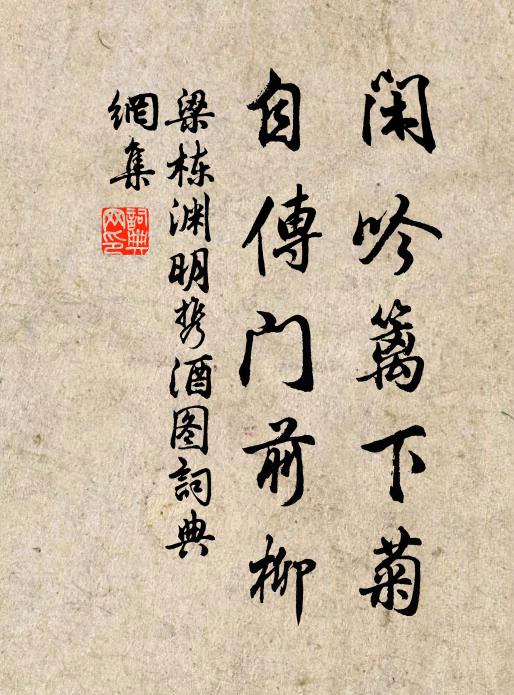 闲吟篱下菊
自傳门前柳
梁栋渊明携酒图詞典
網集
詞典網印